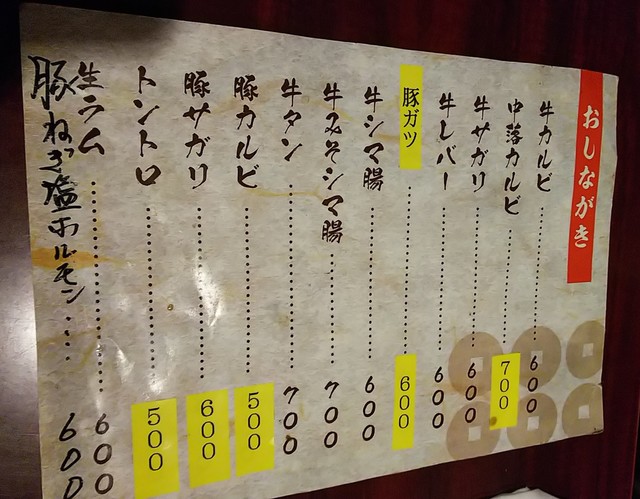 おしながき
牛カルビ 600
中落カルビ 700
牛サガリ 600
牛レバー 600
豚ガツ 600
牛シマ腸 600
牛みそシマ腸 700
牛タン 700
豚カルビ 500
豚サガリ 600
トントロ 500
生ラム 600
豚ねぎ塩ホルモン 600